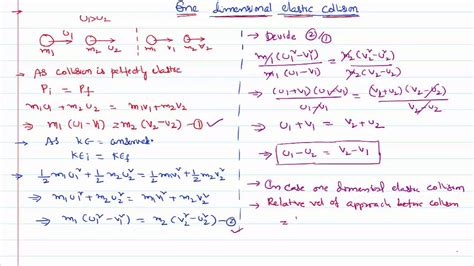 One dimensional elastic collision
u₁>u₂
m₁ u₁ m₂ u₂ m₁ v₁ m₂ v₂
→ As collision is perfectly elastic
Pi = Pf
m₁u₁ + m₂u₂ = m₁v₁ + m₂v₂
⇒ m₁(u₁-v₁) = m₂(v₂-u₂) —① ✓
→ As KE = conserved
KEi = KEf
⇒ ½m₁u₁² + ½m₂u₂² = ½m₁v₁² + ½m₂v₂²
⇒ m₁u₁² + m₂u₂² = m₁v₁² + m₂v₂²
⇒ m₁(u₁²-v₁²) = m₂(v₂²-u₂²) —② ✓
→ Devide ②/①
m₁(u₁²-v₁²)/m₁(u₁-v₁) = m₂(v₂²-u₂²)/m₂(v₂-u₂)
⇒ (u₁+v₁)(u₁-v₁)/(u₁-v₁) = (v₂+u₂)(v₂-u₂)/(v₂-u₂)
⇒ u₁+v₁ = v₂+u₂
⇒ u₁-u₂ = v₂-v₁
→ In case one dimensional elastic collision
→ Relative vel of approach before collision
=